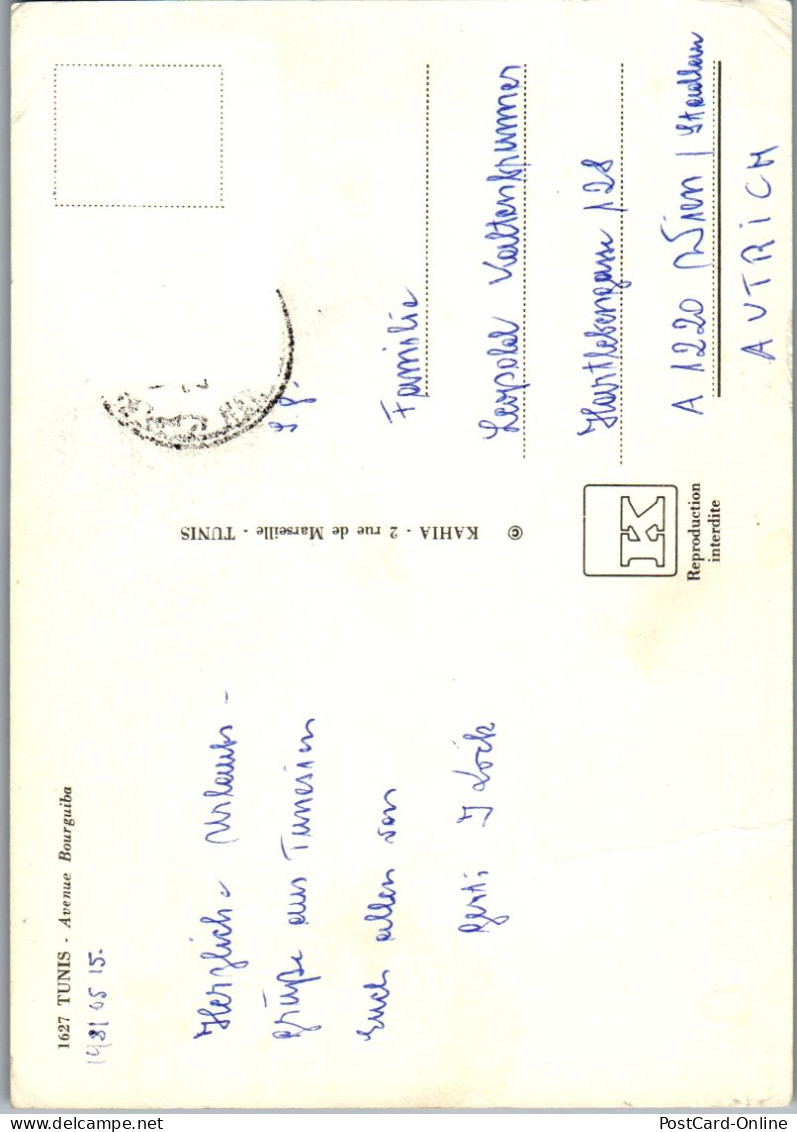 1627 TUNIS - Avenue Bourguiba
1981 05 15.
Herzliche Urlaubs-
grüße aus Tunesien
Euch allen von
Gerti
© KAHIA - 2 rue de Marseille - TUNIS
K
Reproduction
interdite
S. g.
Familie
Leopold Kaltenbrunner
Hartlebengasse 128
A 1220 Wien / Stadlau
AUTRICH
PostCard-Online